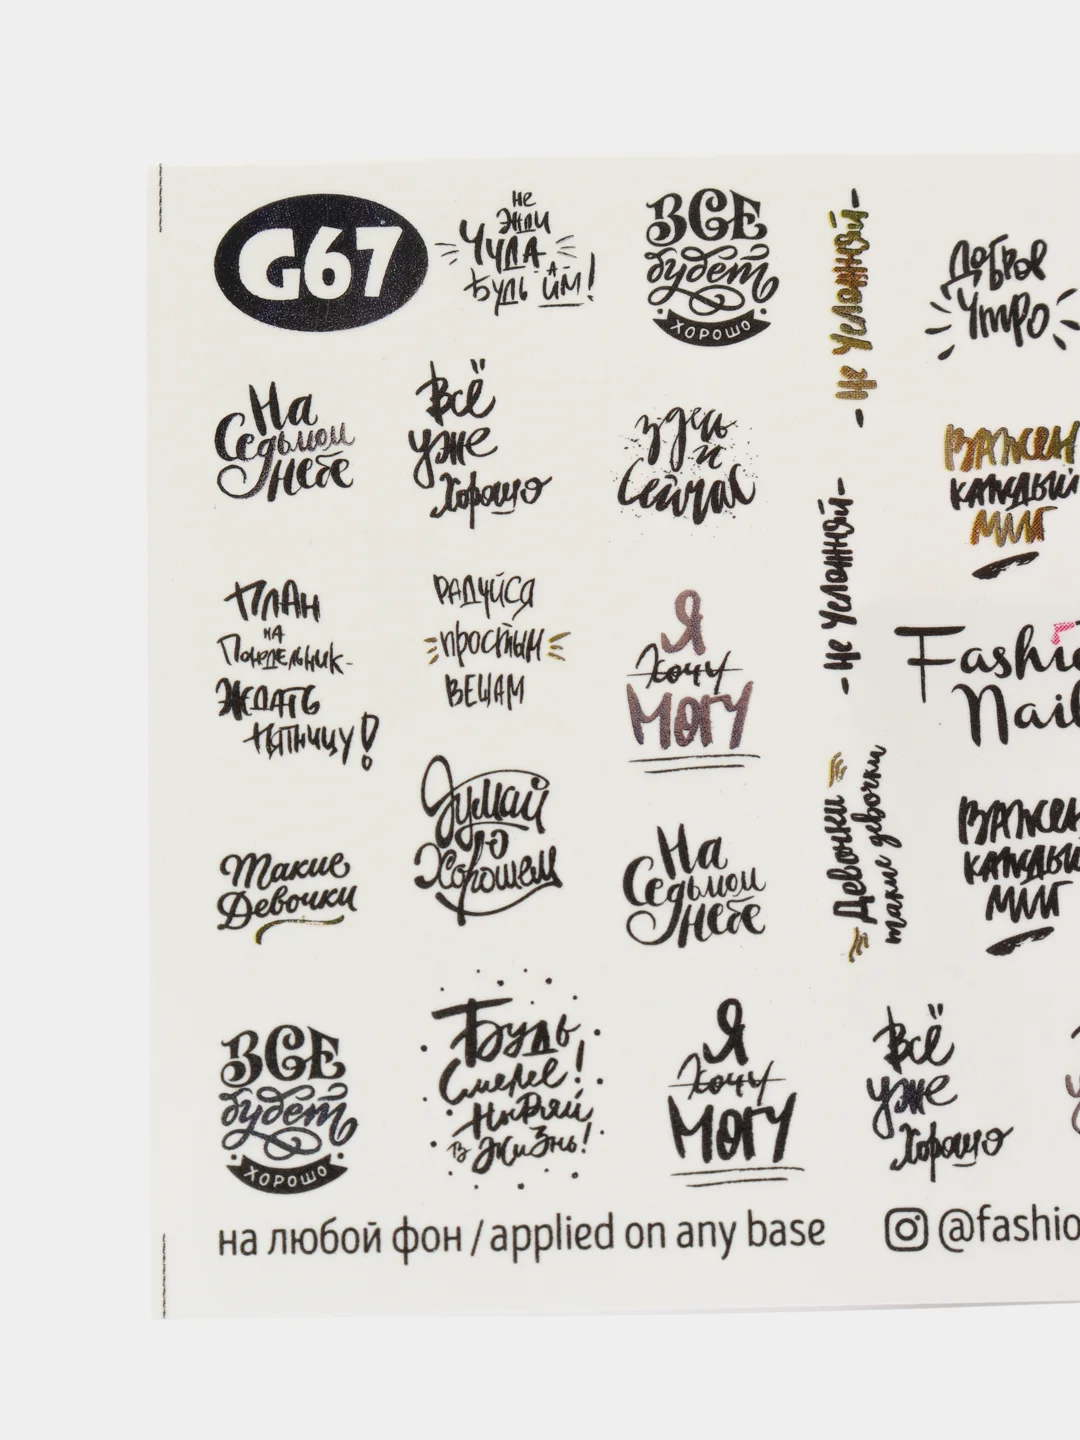 G67
не
жди
чуда
а
будь им!
ВСЕ
будет
ХОРОШО
- Не Усложняй -
Доброе
Утро
На
Седьмом
Небе
Всё
уже
Хорошо
здесь
и
Сейчас
ВАЖЕН
КАЖДЫЙ
МИГ
ПЛАН
НА
Понедельник-
ЖДАТЬ
ПЯТНИЦУ!
РАДУЙСЯ
простым
ВЕЩАМ
Я
Хочу
Могу
- Не Усложняй -
Fashi
Nail
Такие
Девочки
Думай
о
Хорошем
На
Седьмом
Небе
Девочки
такие девочки
ВАЖЕН
КАЖДЫЙ
МИГ
ВСЕ
будет
ХОРОШО
Будь
Смелее!
Ныряй
в Жизнь!
Я
Хочу
Могу
Всё
уже
Хорошо
на любой фон / applied on any base
@fashio